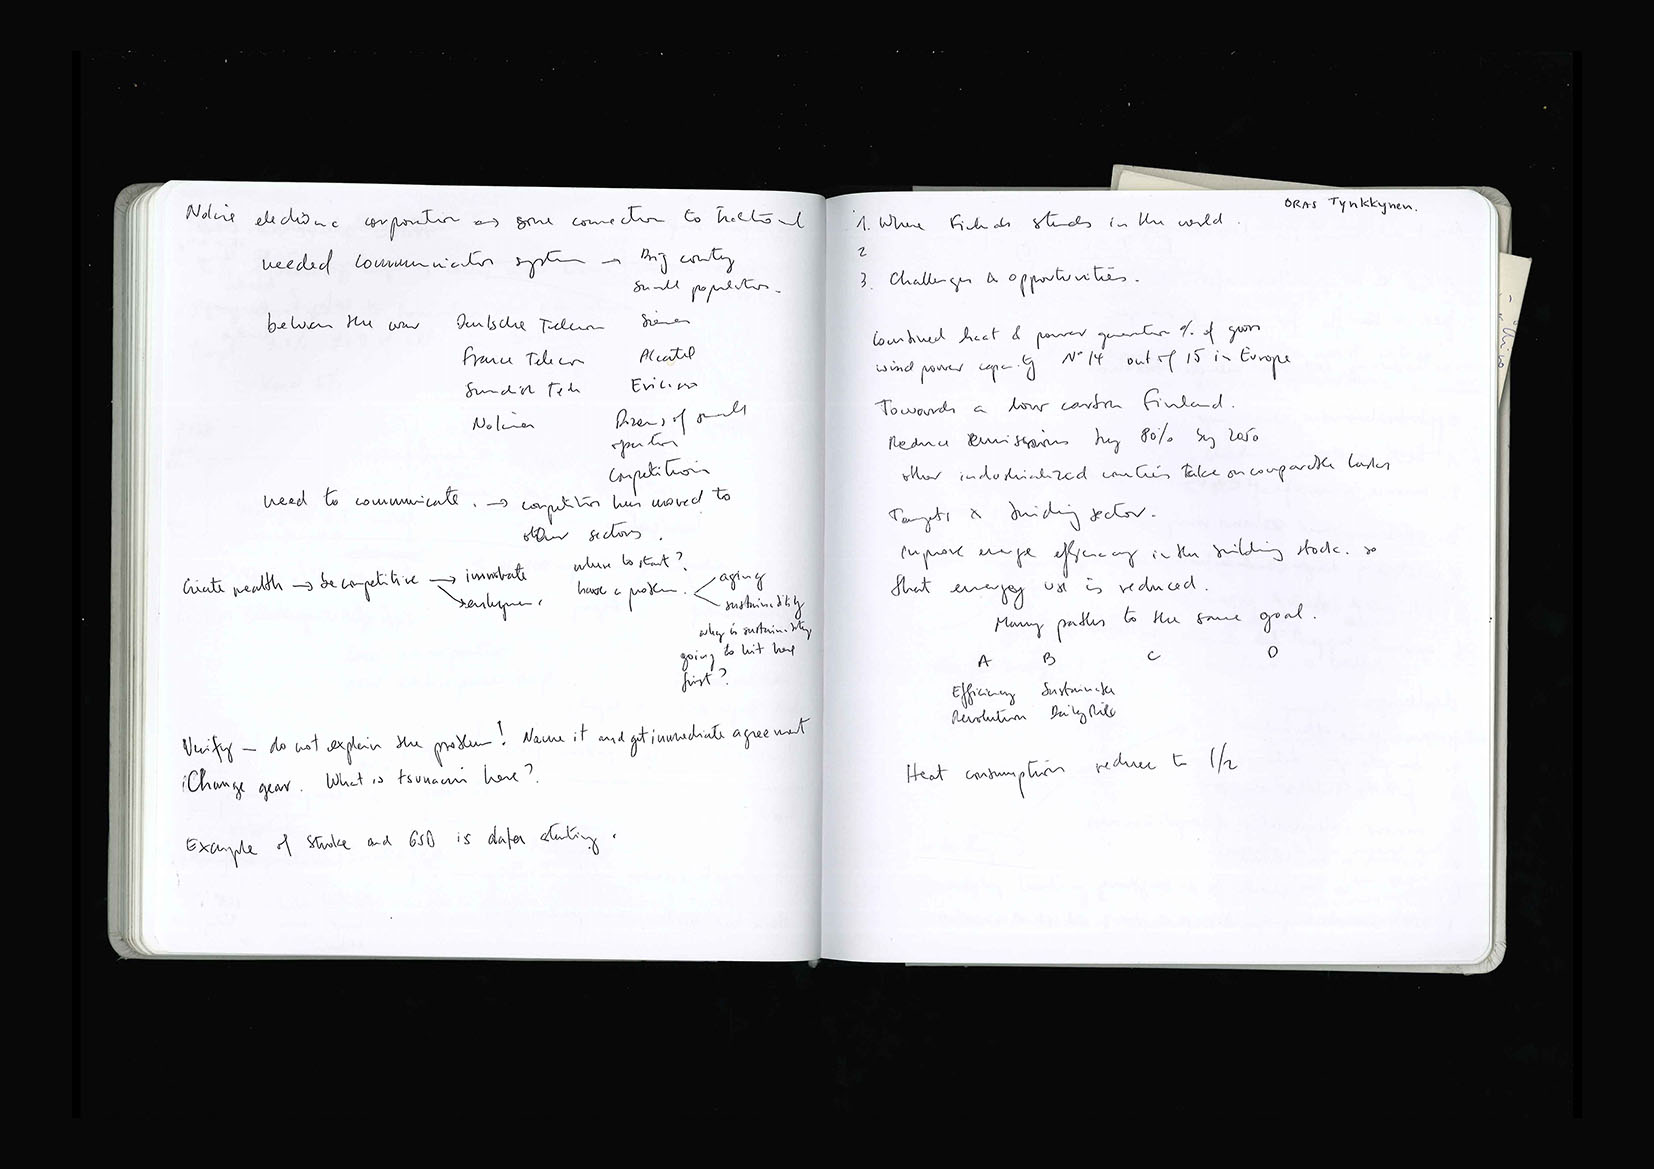 Nokia electronic corporation → some connection to
needed communication system → Big country
small population.
between the war Deutsche Telecom Siemens
France Telecom Alcatel
Swedish Tele Ericsson
Nokia Dozens of small
operators
competition
need to communicate. → competition has moved to
other sectors.
where to start?
Create wealth → be competitive → innovate have a problem. aging
sustainability
why is sustainability
going to hit here
first?
Verify — do not explain the problem! Name it and get immediate agreement
Change gear. What is tsunami here?
Example of stroke and GSD is starting.
ORAS Tynkkynen.
1. Where Finland stands in the world.
2
3. Challenges & opportunities.
Combined heat & power generation % of gross
wind power capacity N° 14 out of 15 in Europe
Towards a low carbon Finland.
Reduce emissions by 80% by 2050
other industrialized countries take on comparable
Targets x building sector.
Improve energy efficiency in the building stock. so
that energy use is reduced.
Many paths to the same goal.
A B C D
Efficiency Sustainable
Revolution Daily Mile
Heat consumption reduce to 1/2